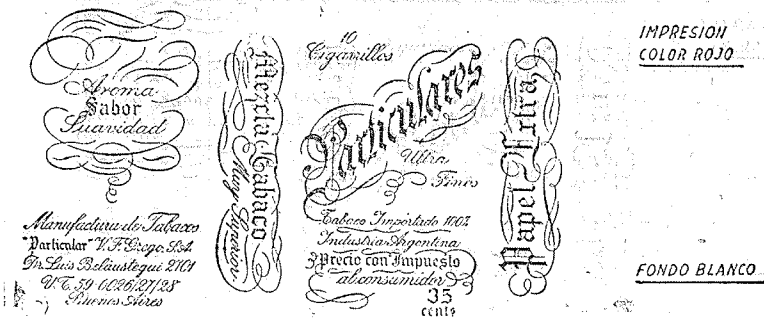 Aroma
Sabor
Suavidad
Manufactura de Tabacos
"Particular" V.F. Grego. S.A.
Dr. Luis Beláustegui 2101
U.T. 59-0026/27/28
Buenos Aires
Mezcla Tabaco
Muy Superior
10
Cigarrillos
Particulares
Ultra
Finos
Tabaco Importado 100%
Industria Argentina
Precio con Impuesto
al consumidor
35
cents
Papel Extra
IMPRESION
COLOR ROJO
FONDO BLANCO